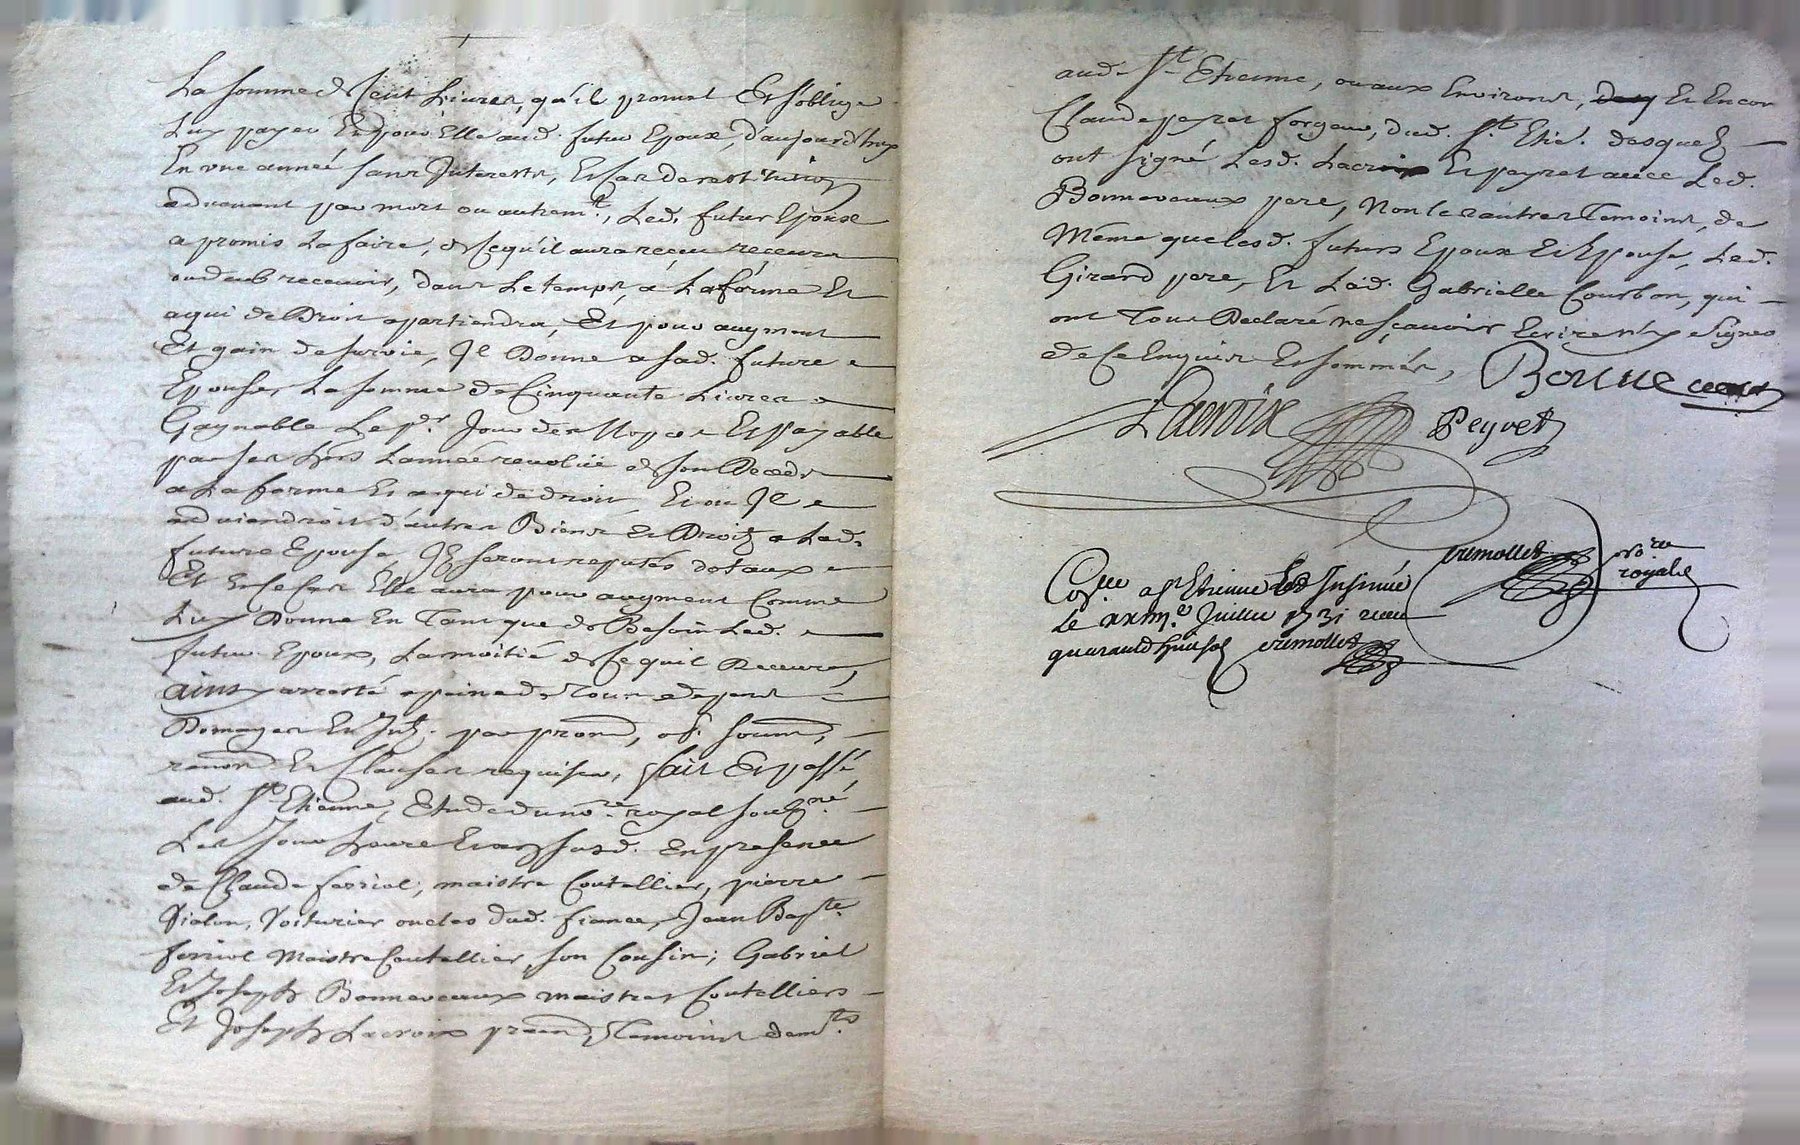 La somme de Cent Livres, qu'il promet Et s'oblige
Luy payer Et pour Elle aud. futur Epoux, d'aujourd'huy
En une année sans Interests, Et Cas de restitution
advenant par mort ou autremt., Led. futur Epoux
a promis La faire, de Ce qu'il aura reçeu recevra
ou deub recevoir, dans Le temps, a La forme Et
a qui de Droit apartiendra, Et pour augment
Et gain de survie, Il Donne a sad. future
Epouse, La somme de Cinquante Livres
Gagnable Le pr. Jour des Nopces Et payable
par ses hoirs L'année revolüe de son Deceds
a La forme Et a qui de droit, Et ou Il
adviendroit d'autres Biens Et Droits a Lad.
future Epouse, Ils seront reputés dotaux
Et En Ce Cas Elle aura pour augment Comme
Luy Donne En Tant que de Besoin Led.
futur Epoux, La moitié de Ce quil Recevra,
ainsy arresté a peine de Tous depens
Domages Et Ints. par prom., ob. soum.,
renon. Et Clauses requises, fait Et passé
aud. St. Etienne, Etude du nore. royal soubzné.
Les Jour heure Et an susd. En presence
de Claude ferriol, maistre Coutellier, pierre
Vialon, Voiturier oncles dud. fiancé, Jean Bapte.
ferriol Maistre Coutellier, son Cousin; Gabriel
Et Joseph Bonnevaux maistres Coutelliers
Et Joseph Lacroix praen. Temoins demts.
aud. St. Etienne, ou aux Environs, Et Encor
Claude peyret forgeur, dud. St. Etie. desquels
ont signé Lesd. Lacroix Et peyret avec Led.
Bonnevaux pere, Non les autres Temoins, de
Même que lesd. futurs Epoux Et Epouse, Led.
Girard pere, Et Lad. Gabrielle Courbon, qui
ont Tous Declaré ne sçavoir Ecrire ny signer
de Ce Enquis Et sommés, Bonnevaux
Lacroix Peyret
cremollet nore
royal
Colle. a St Etienne Et Insinué
Le Juillet 1731 receu
quarante huit sol cremollet